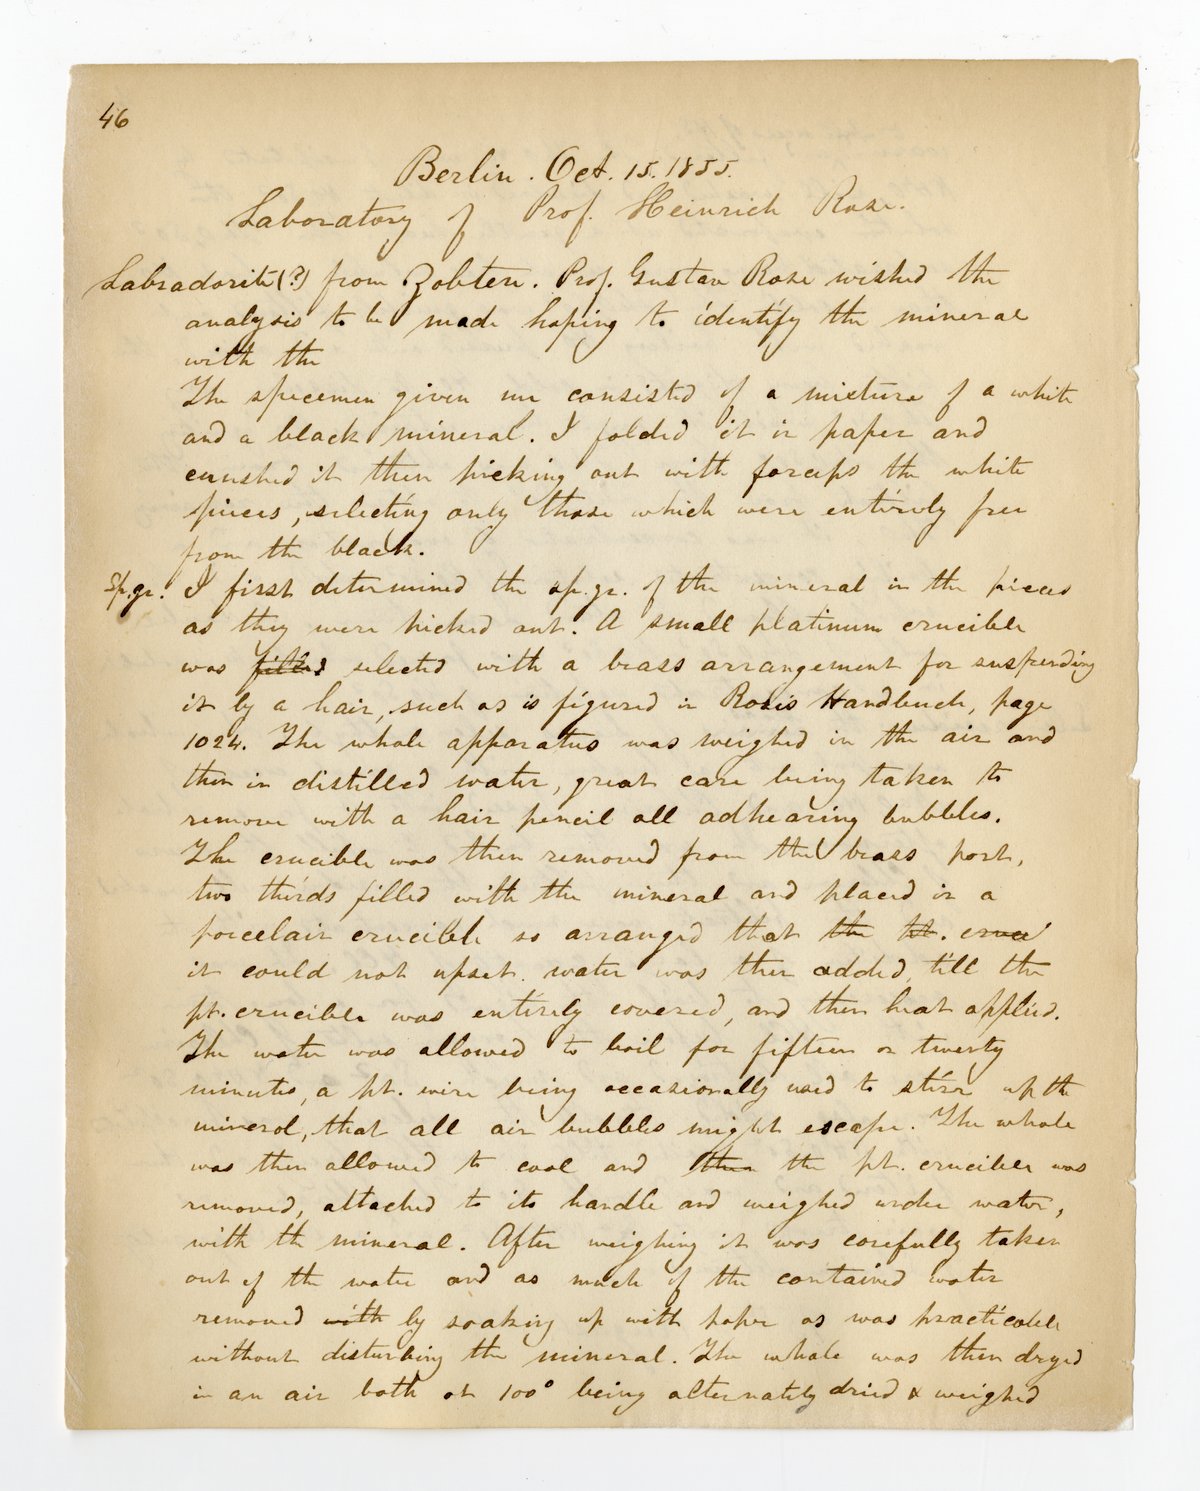 46
Berlin. Oct. 15. 1855.
Laboratory of Prof. Heinrich Rose.
Labradorite(?) from Zobten. Prof. Gustav Rose wished the
analysis to be made hoping to identify the mineral
with the
The specimen given me consisted of a mixture of a white
and a black mineral. I folded it in paper and
crushed it then picking out with forceps the white
pieces, selecting only those which were entirely free
from the black.
Sp.gr. I first determined the sp.gr. of the mineral in the pieces
as they were picked out. A small platinum crucible
was filled selected with a brass arrangement for suspending
it by a hair, such as is figured in Rose's Handbuch, page
1024. The whole apparatus was weighed in the air and
then in distilled water, great care being taken to
remove with a hair pencil all adhearing bubbles.
The crucible was then removed from the brass part,
two thirds filled with the mineral and placed in a
porcelain crucible so arranged that the pt. cruci
it could not upset. water was then added till the
pt. crucible was entirely covered, and then heat applied.
The water was allowed to boil for fifteen or twenty
minutes, a pt. wire being occasionally used to stirr up the
mineral, that all air bubbles might escape. The whole
was then allowed to cool and then the pt. crucible was
removed, attached to its handle and weighed under water,
with the mineral. After weighing it was carefully taken
out of the water and as much of the contained water
removed with by soaking up with paper as was practicable
without disturbing the mineral. The whole was then dryed
in an air bath at 100° being alternately dried & weighed